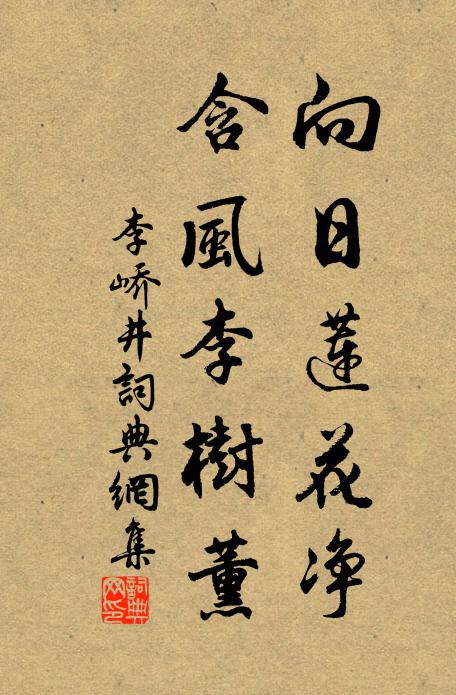 向日蓮花净
含風李樹薰
李嶠井詞典網集
詞典網印